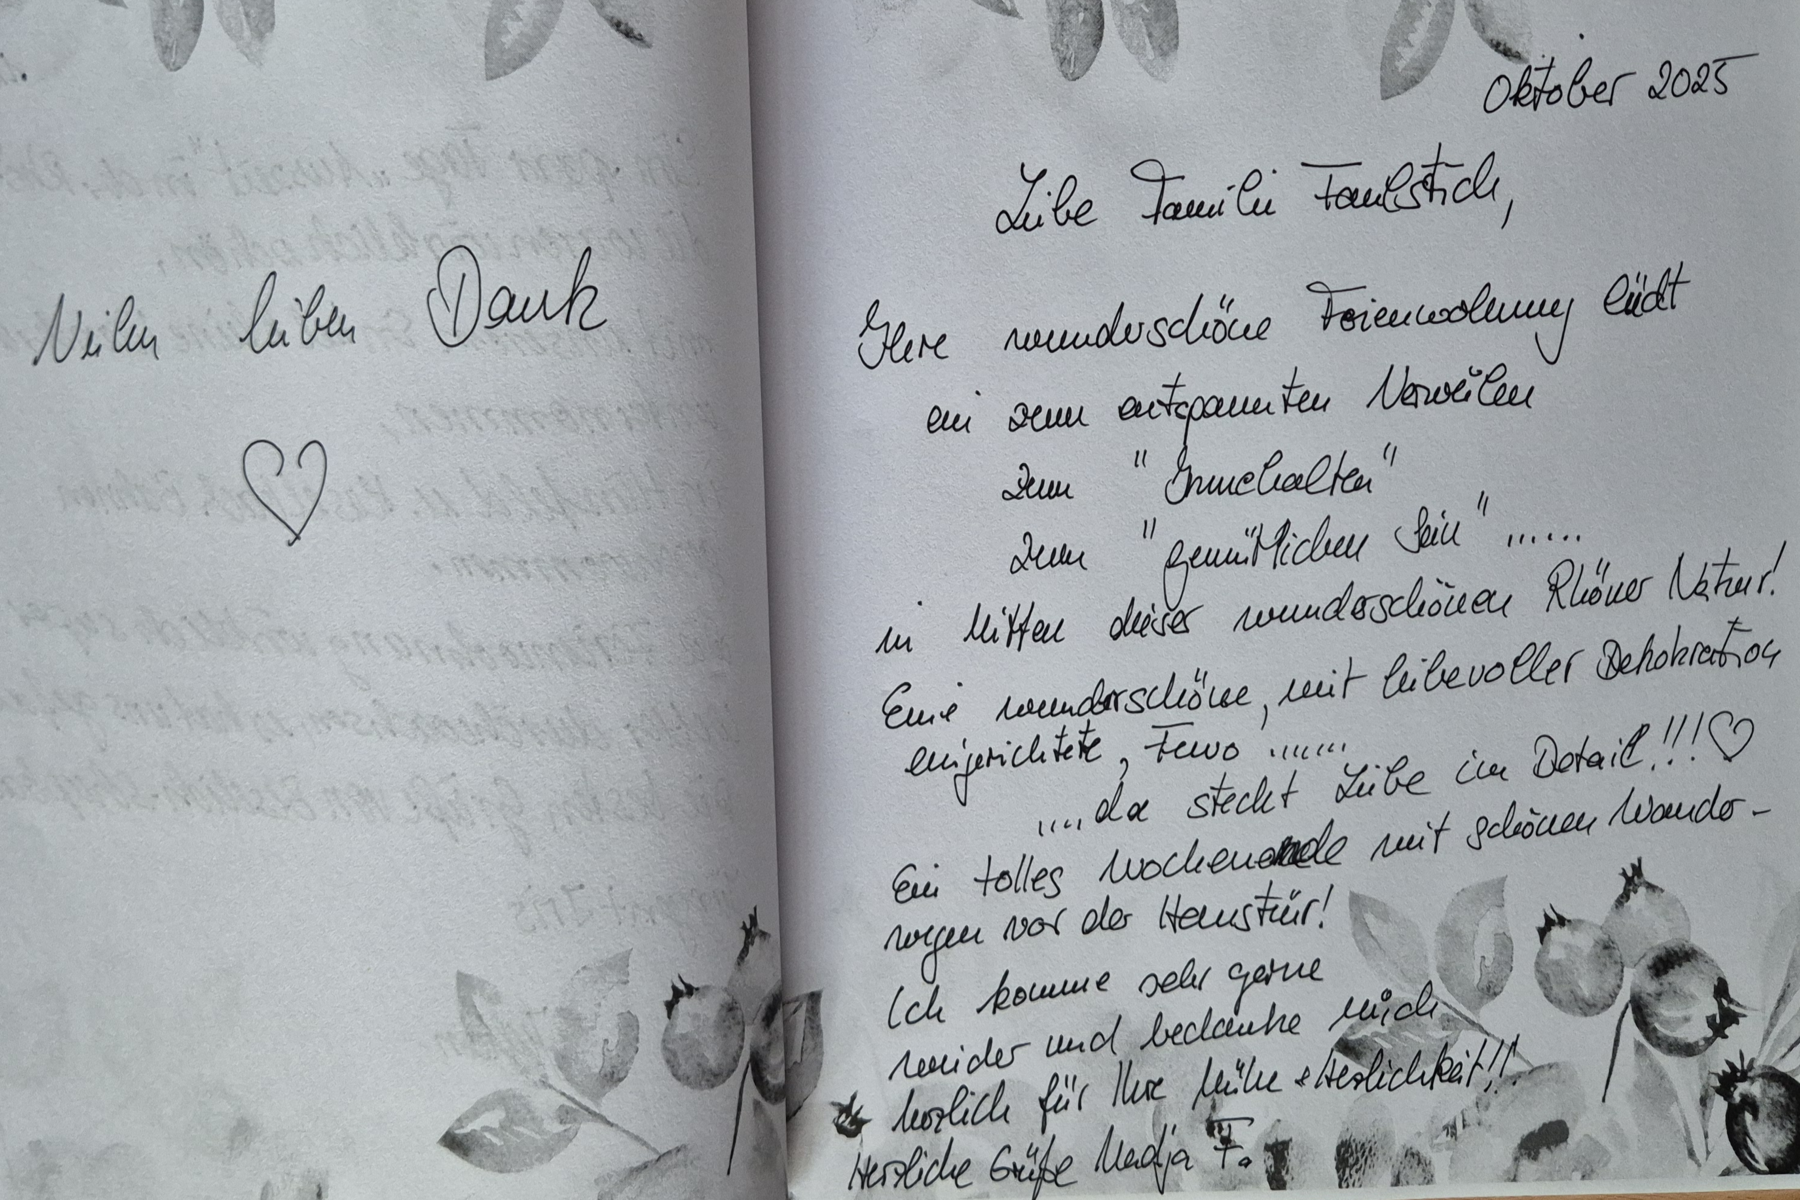 Vielen lieben Dank
♡
Oktober 2025
Liebe Familie Faulstich,
Ihre wunderschöne Ferienwohnung lädt
ein zum entspannten Verweilen
zum "Innehalten"
zum "gemütlichen Sein" ......
in Mitten dieser wunderschönen Rhöner Natur!
Eine wunderschöne, mit liebevoller Dekokration
eingerichtete, Fewo .......
....da steckt Liebe im Detail!!!♡
Ein tolles Wochenende mit schönen Wander-
wegen vor der Haustür!
Ich komme sehr gerne
wieder und bedanke mich
herzlich für Ihre Mühe + Herzlichkeit!!
Herzliche Grüße Nadja F.